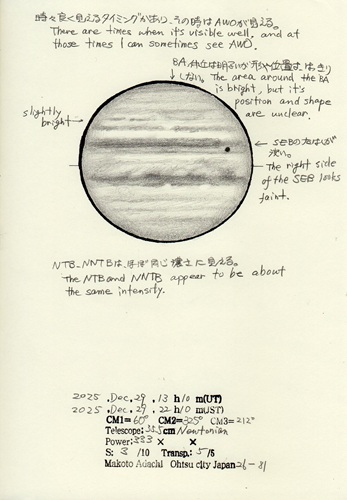 時々良く見えるタイミングがあり、その時はAWOが見える。
There are times when it's visible well, and at
those times I can sometimes see AWO.
BA付近は明るいが形や位置は、はっきり
しない。The area around the BA
is bright, but it's
position and shape
are unclear.
slightly
bright
SEBの右はしが
淡い。
The right side
of the SEB looks
faint.
NTB、NNTBは、ほぼ同じ濃さに見える。
The NTB and NNTB appear to be about
the same intensity.
2025 .Dec. 29 . 13 h 10 m(UT)
2025 .Dec. 29 . 22 h 10 m(JST)
CM1= 60° CM2= 325° CM3= 212°
Telescope: 35.5cm Newtonian
Power: 333 × ×
S: 3 /10 Transp.: 5/5
Makoto Adachi Ohtsu city Japan 26-81